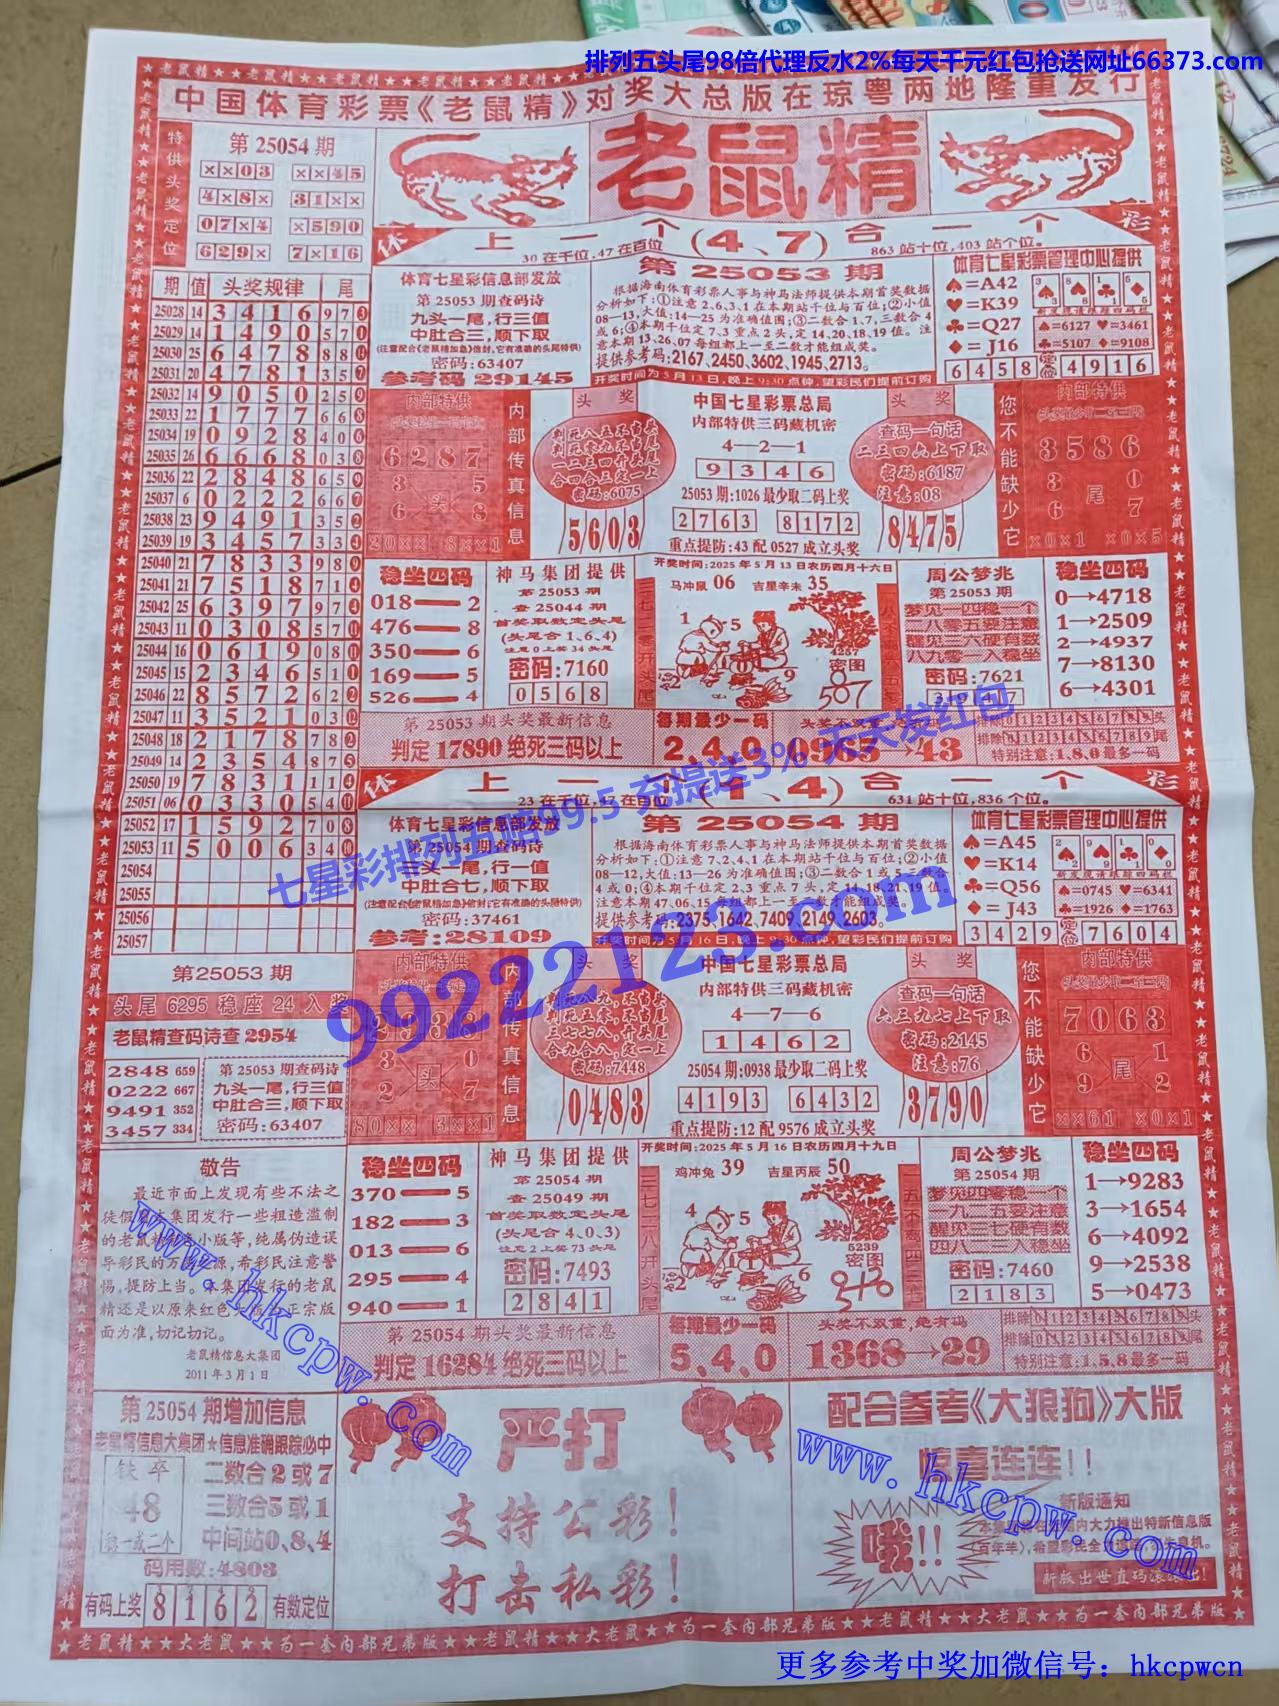 排列五头尾98倍代理反水2%每天千元红包抢送网址66373.com
中国体育彩票《老鼠精》对奖大总版在琼粤两地隆重发行
特供头奖定位
第 25054 期
××03 ××45
4×8× 31××
07×4 ×590
629× 7×16
老鼠精
期 值 头奖规律 尾
25028 14 3416 97
25029 14 1490 57
25030 25 6478 88
25031 20 4781 35
25032 14 9050 25
25033 22 1777 66
25034 19 0928 40
25035 26 6668 03
25036 22 2848 65
25037 6 0222 66
25038 23 9491 35
25039 19 3457 33
25040 21 7833 98
25041 21 7518 71
25042 25 6397 97
25043 11 0308 57
25044 16 0619 08
25045 15 2346 51
25046 22 8572 62
25047 11 3521 03
25048 18 2178 78
25049 14 2354 87
25050 19 7831 11
25051 06 0330 54
25052 17 1592 70
25053 11 5006 34
25054
25055
25056
25057
第25053 期
头尾 6295 稳座 24 入奖
老鼠精查码诗查 2954
2848 659
0222 667
9491 352
3457 334
第 25053 期查码诗
九头一尾,行三值
中肚合三,顺下取
密码:63407
体 上一个(4、7)合一个 彩
30 在千位,47 在百位
863 站十位,403 站个位。
体育七星彩信息部发放
第 25053 期查码诗
九头一尾,行三值
中肚合三,顺下取
(注意配合《老鼠精加急》信封,它有准确的头尾特供)
密码:63407
参考码 29145
第 25053 期
根据海南体育彩票人事与神马法师提供本期首奖数据
分析如下:①注意 2、6、3、1 在本期站千位与百位;②小值
08—13,大值:14—25 为准确值围;③二数合 1、7,三数合 4
或 6;④本期千位定 7、3 重点 2 头,定 14、20、18、19 值。注
意本期 13、26、07 每组都上一至二数才能组成奖。
提供参考码:2167、2450、3602、1945、2713。
开奖时间为 5 月 13 日,晚上 9:30 点钟,望彩民们提前订购
体育七星彩票管理中心提供
♠=A42
♥=K39
♣=Q27
♦=J16
♠=6127 ♥=3461
♣=5107 ♦=9108
6458 定位 4916
内部特供
6287
3 5
头
6 8
20×× 8××1
内部传真信息
头奖
判死八五不当头
判死零九不当尾
一二三四开头尾
合四合三定一上
密码:6075
5603
中国七星彩票总局
内部特供三码藏机密
4—2—1
9346
25053 期:1026 最少取二码上奖
2763 8172
重点提防:43 配 0527 成立头奖
头奖
查码一句话
二三四六上下取
密码:6187
注意:08
8475
您不能缺少它
内部特供
3586
3 0
尾
6 7
×0×1 ×0×5
稳坐四码
018—2
476—8
350—6
169—5
526—4
神马集团提供
第 25053 期
查 25044 期
首奖取数定头尾
(头尾合 1、6、4)
注意 0 上奖 34 头尾
密码:7160
0568
开奖时间:2025 年 5 月 13 日农历四月十六日
马冲鼠 06 吉星辛未 35
4257
密图
周公梦兆
第 25053 期
梦见一四稳一个
二八零五要注意
醒见三六硬有数
八九零一入稳坐
密码:7621
稳坐四码
0→4718
1→2509
2→4937
7→8130
6→4301
第 25053 期头奖最新信息
判定 17890 绝死三码以上
每期最少一码
2、4、0
头奖不双重
0965→43
特别注意:1、8、0 最多一码
体 上一个(1、4)合一个 彩
23 在千位,47 在百位
631 站十位,836 个位。
体育七星彩信息部发放
第 25054 期查码诗
三头一尾,行一值
中肚合七,顺下取
(注意配合《老鼠精加急》信封,它有准确的头尾特供)
密码:37461
参考:28109
第 25054 期
根据海南体育彩票人事与神马法师提供本期首奖数据
分析如下:①注意 7、2、4、1 在本期站千位与百位;②小值
08—12,大值:13—26 为准确值围;③二数合 1 或 5,三数合
4 或 0;④本期千位定 2、3 重点 7 头,定 14、18、21、19 值。
注意本期 47、06、15 每组都上一至二数才能组成奖。
提供参考码:2375、1642、7409、2149、2603。
开奖时间为 5 月 16 日,晚上 9:30 点钟,望彩民们提前订购
体育七星彩票管理中心提供
♠=A45
♥=K14
♣=Q56
♦=J43
♠=0745 ♥=6341
♣=1926 ♦=1763
3429 定位 7604
内部特供
3 0
头
2 7
80×× 3××1
内部传真信息
头奖
密码:7448
0483
中国七星彩票总局
内部特供三码藏机密
4—7—6
1462
25054 期:0938 最少取二码上奖
4193 6432
重点提防:12 配 9576 成立头奖
头奖
查码一句话
六三九七上下取
密码:2145
注意:76
3790
您不能缺少它
内部特供
7063
6 1
尾
9 2
××61 ×0×1
敬告
最近市面上发现有些不法之
徒假冒本集团发行一些粗造滥制
的老鼠精彩色小版等,纯属伪造误
导彩民的万恶之源,希彩民注意警
惕,提防上当。本集团发行的老鼠
精还是以原来红色大版为正宗版
面为准,切记切记。
老鼠精信息大集团
2011 年 3 月 1 日
稳坐四码
370—5
182—3
013—6
295—4
940—1
神马集团提供
第 25054 期
查 25049 期
首奖取数定头尾
(头尾合 4、0、3)
注意 2 上奖 73 头尾
密码:7493
2841
开奖时间:2025 年 5 月 16 日农历四月十九日
鸡冲兔 39 吉星丙辰 50
5239
密图
周公梦兆
第 25054 期
梦见四零稳一个
一九二五要注意
醒见二七硬有数
四八三一入稳坐
密码:7460
2183
稳坐四码
1→9283
3→1654
6→4092
9→2538
5→0473
第 25054 期头奖最新信息
判定 16284 绝死三码以上
每期最少一码
5、4、0
头奖不双重,绝有码
1368→29
特别注意:1、5、8 最多一码
第 25054 期增加信息
老鼠精信息大集团★信息准确跟踪必中
铁卒
48
稳一或二个
二数合 2 或 7
三数合 5 或 1
中间站0、8、4
码用数:4803
有码上奖 8162 有数定位
严打
支持公彩!
打击私彩!
配合参考《大狼狗》大版
惊喜连连!!
哦!!
新版通知
七星彩排列五赔99.5 充提送3% 天天发红包
99222123.com
www.hkcpw.com
www.hkcpw.com
★老鼠精★★大老鼠★★为一套内部兄弟版★★老鼠精★★大老鼠★★为一套内部兄弟版
更多参考中奖加微信号：hkcpwcn